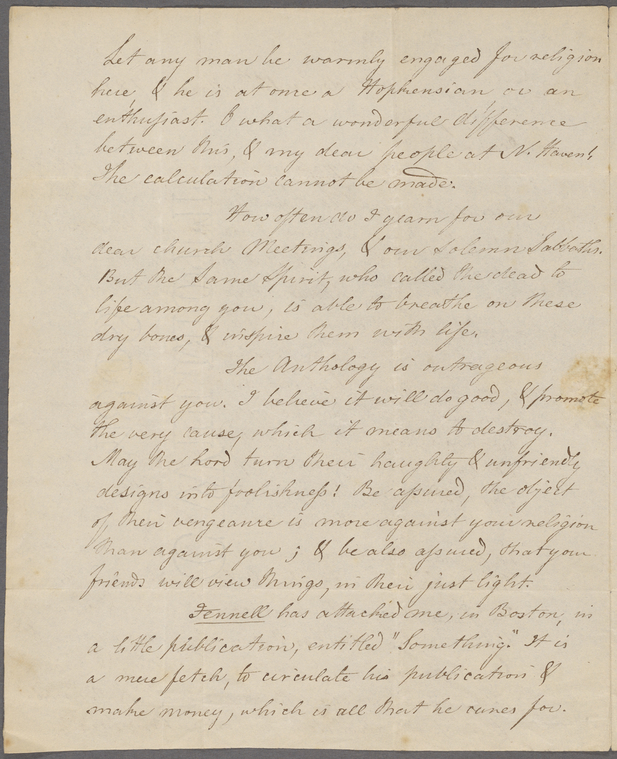 Let any man be warmly engaged for religion
here, & he is at once a Hopkensian or an
enthusiast. O what a wonderful difference
between this, & my dear people at N. Haven!
The calculation cannot be made.
How often do I yearn for our
dear church Meetings, & our solemn Sabbaths.
But the same Spirit, who called the dead to
life among you, is able to breathe on these
dry bones, & inspire them with life.
The Anthology is outrageous
against you. I believe it will do good, & promote
the very cause, which it means to destroy.
May the Lord turn their haughty & unfriendly
designs into foolishness! Be assured, the object
of their vengeance is more against your religion
than against you; & be also assured, that your
friends will view things, in their just light.
Fennell has attacked me, in Boston, in
a little publication, entitled "Something." It is
a mere fetch, to circulate his publication &
make money, which is all that he cares for.